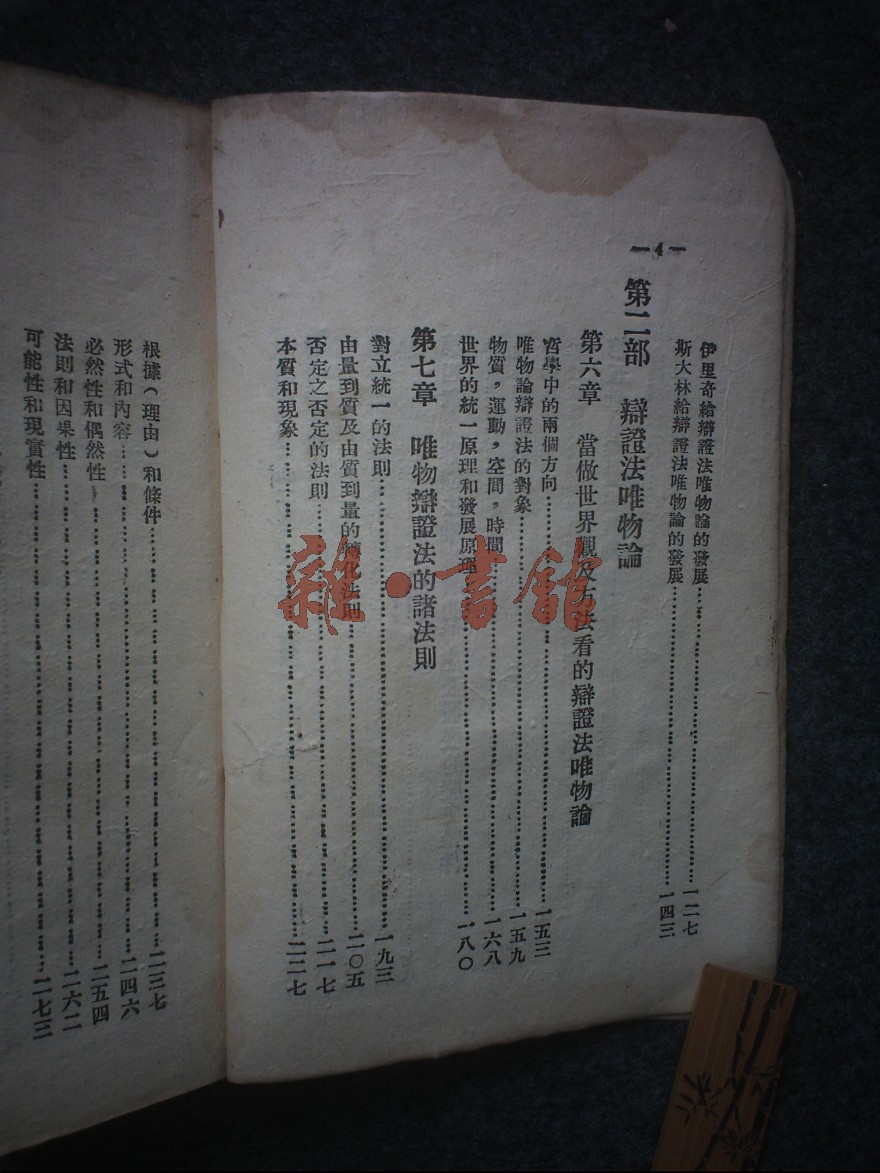 —4—
伊里奇給辯證法唯物論的發展……一二七
斯大林給辯證法唯物論的發展……一四三
第二部 辯證法唯物論
第六章 當做世界觀及方法看的辯證法唯物論
哲學中的兩個方向……一五三
唯物論辯證法的對象……一五九
物質，運動，空間，時間……一六八
世界的統一原理和發展原理……一八〇
第七章 唯物辯證法的諸法則
對立統一的法則……一九三
由量到質及由質到量的轉化法則……二〇五
否定之否定的法則……二一七
本質和現象……二二七
根據（理由）和條件……二三七
形式和內容……二四六
必然性和偶然性……二五四
法則和因果性……二六二
可能性和現實性……二七三
雜·書館